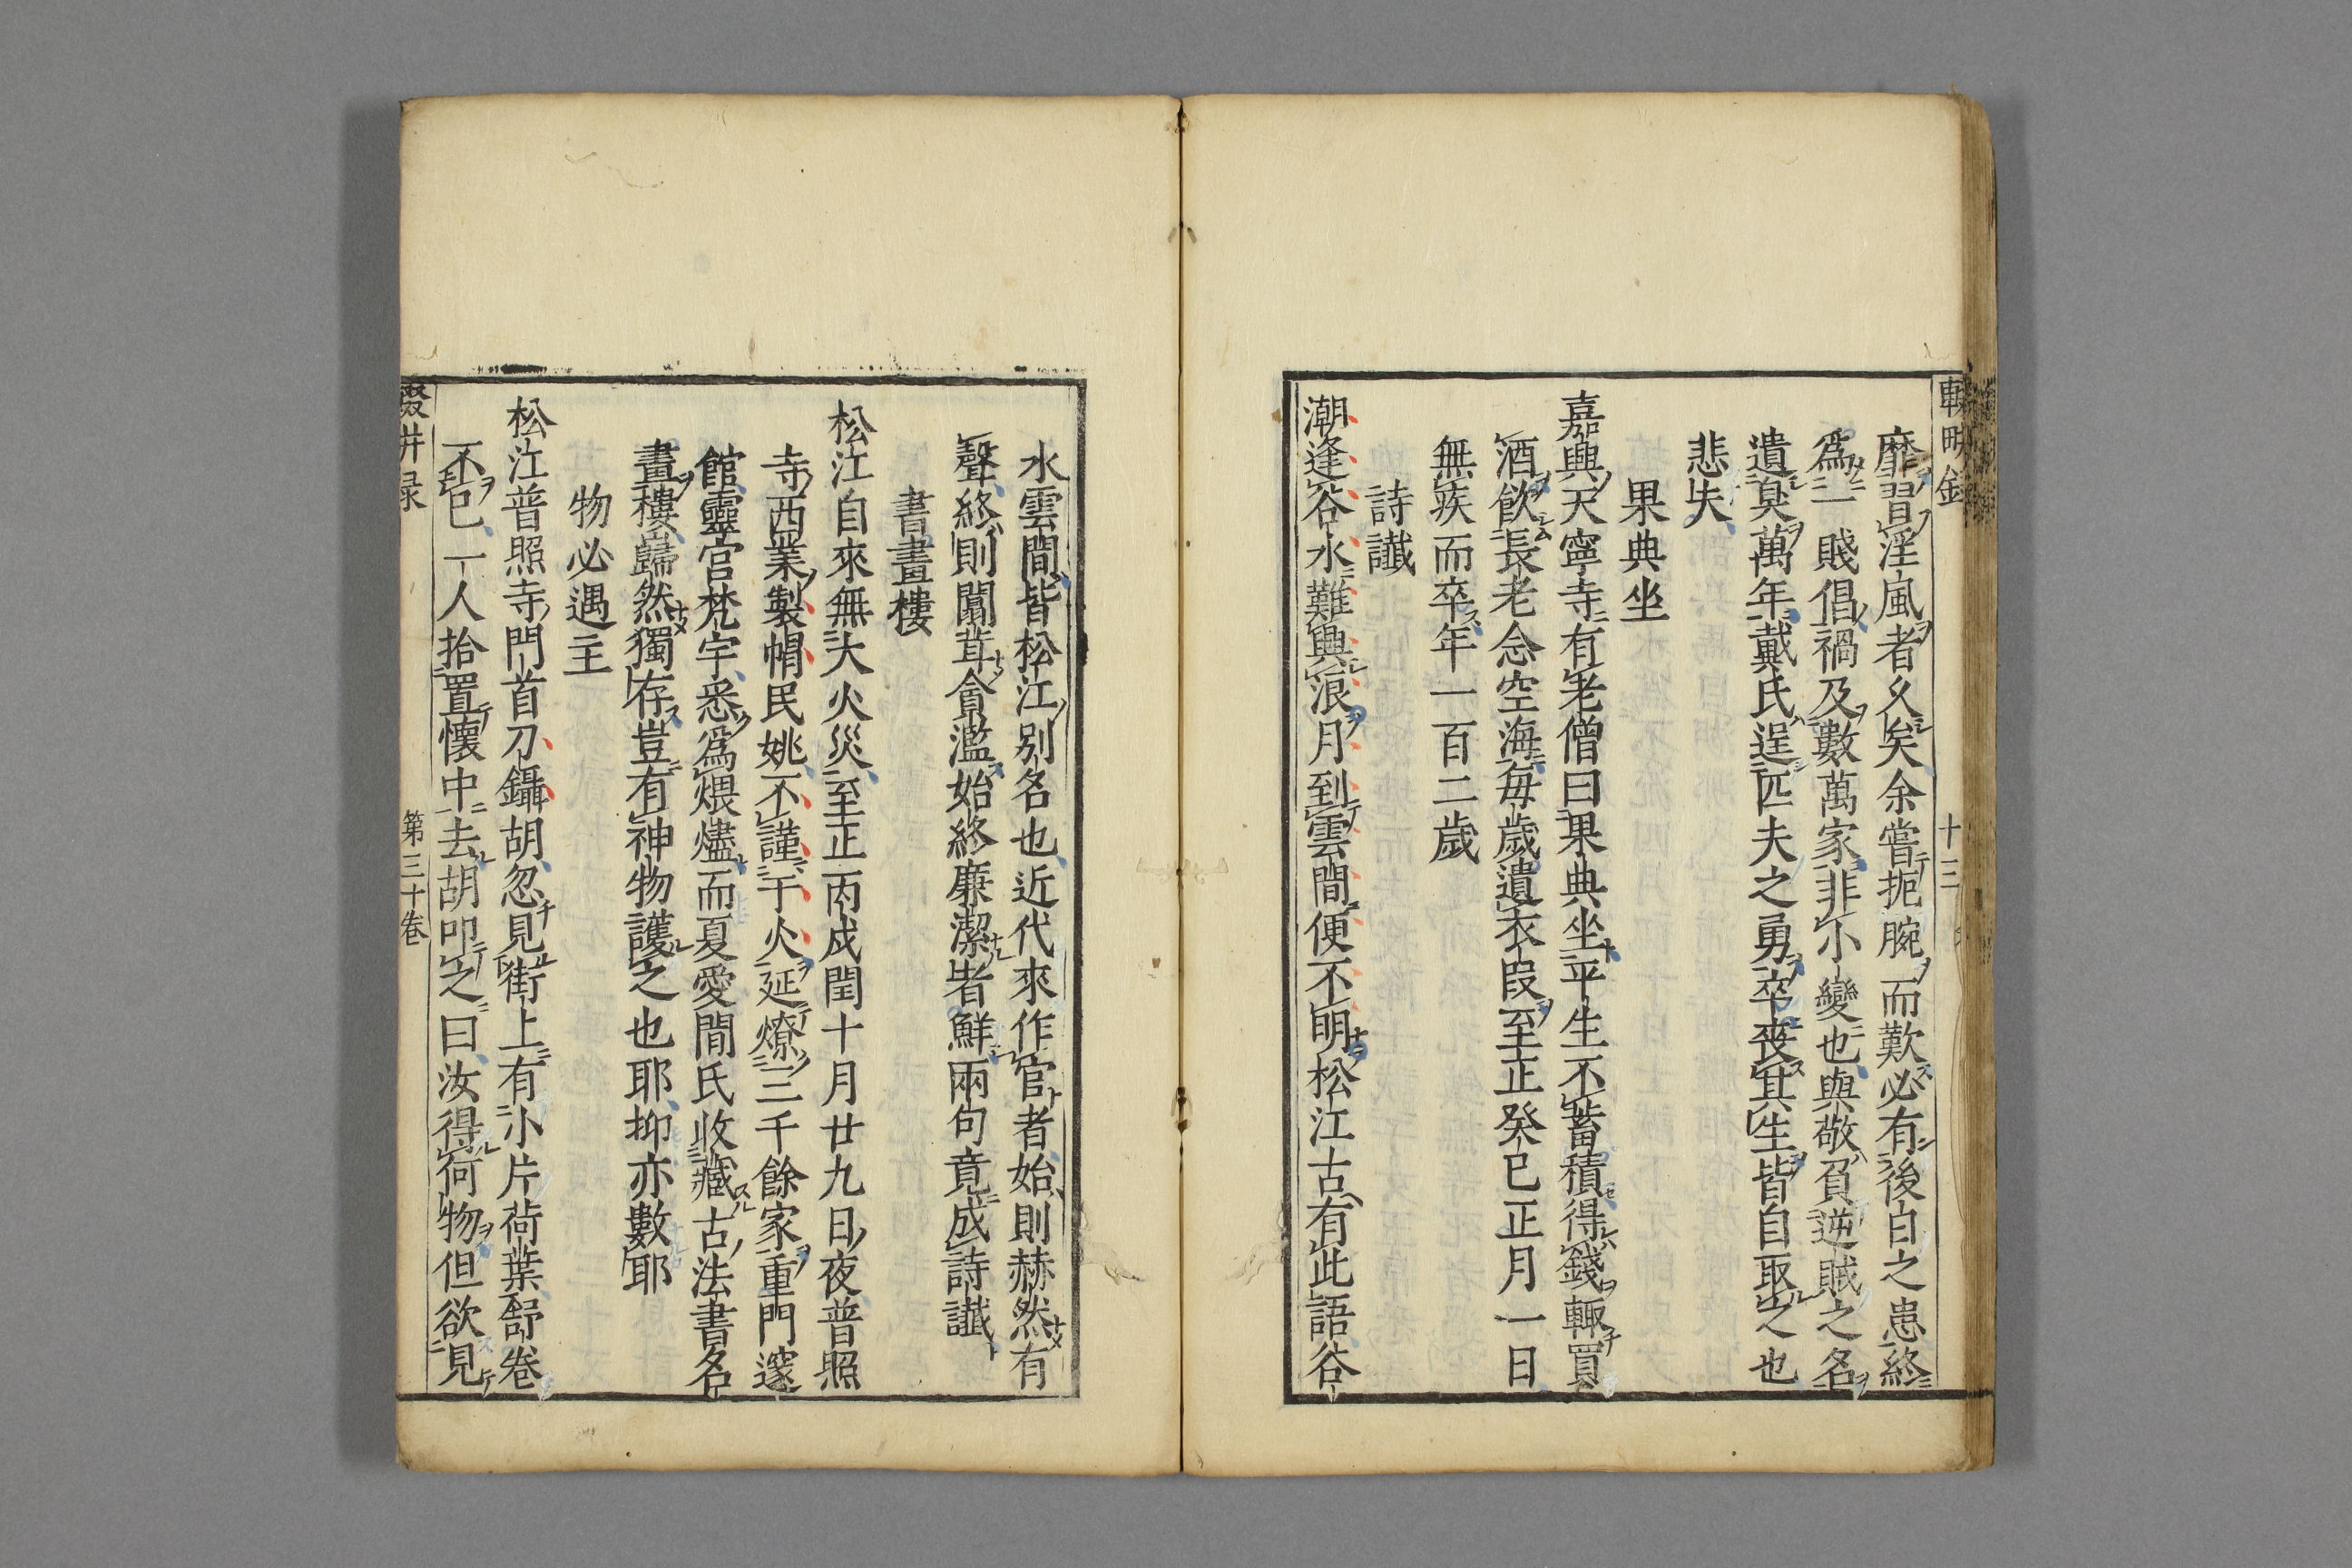 靡習淫風者久矣余嘗扼腕而歎必有後日之患終
爲一賤倡禍及數萬家非小變也與敬負逆賊之名
遺臭萬年戴氏逞匹夫之勇卒喪其生皆自取之也
悲夫
果典坐
嘉興天寧寺有老僧曰果典坐平生不蓄積得錢輒買
酒飲長老念空海每歲遺衣段至正癸巳正月一日
無疾而卒年一百二歲
詩讖
潮逢谷水難興浪月到雲間便不明松江古有此語谷
水雲間皆松江別名也近代來作官者始則赫然有
聲終則闒茸貪濫始終廉潔者鮮兩句竟成詩讖
書畫樓
松江自來無大火災至正丙戌閏十月廿九日夜普照
寺西業製帽民姚不謹于火延燎三千餘家重門邃
館靈宮梵宇悉爲煨燼而夏愛閒氏收藏古法書名
畫樓巋然獨存豈有神物護之也耶抑亦數耶
物必遇主
松江普照寺門首刀鑷胡忽見街上有小片荷葉舒卷
不已一人拾置懷中去胡叩之曰汝得何物但欲見
十三
第三十卷